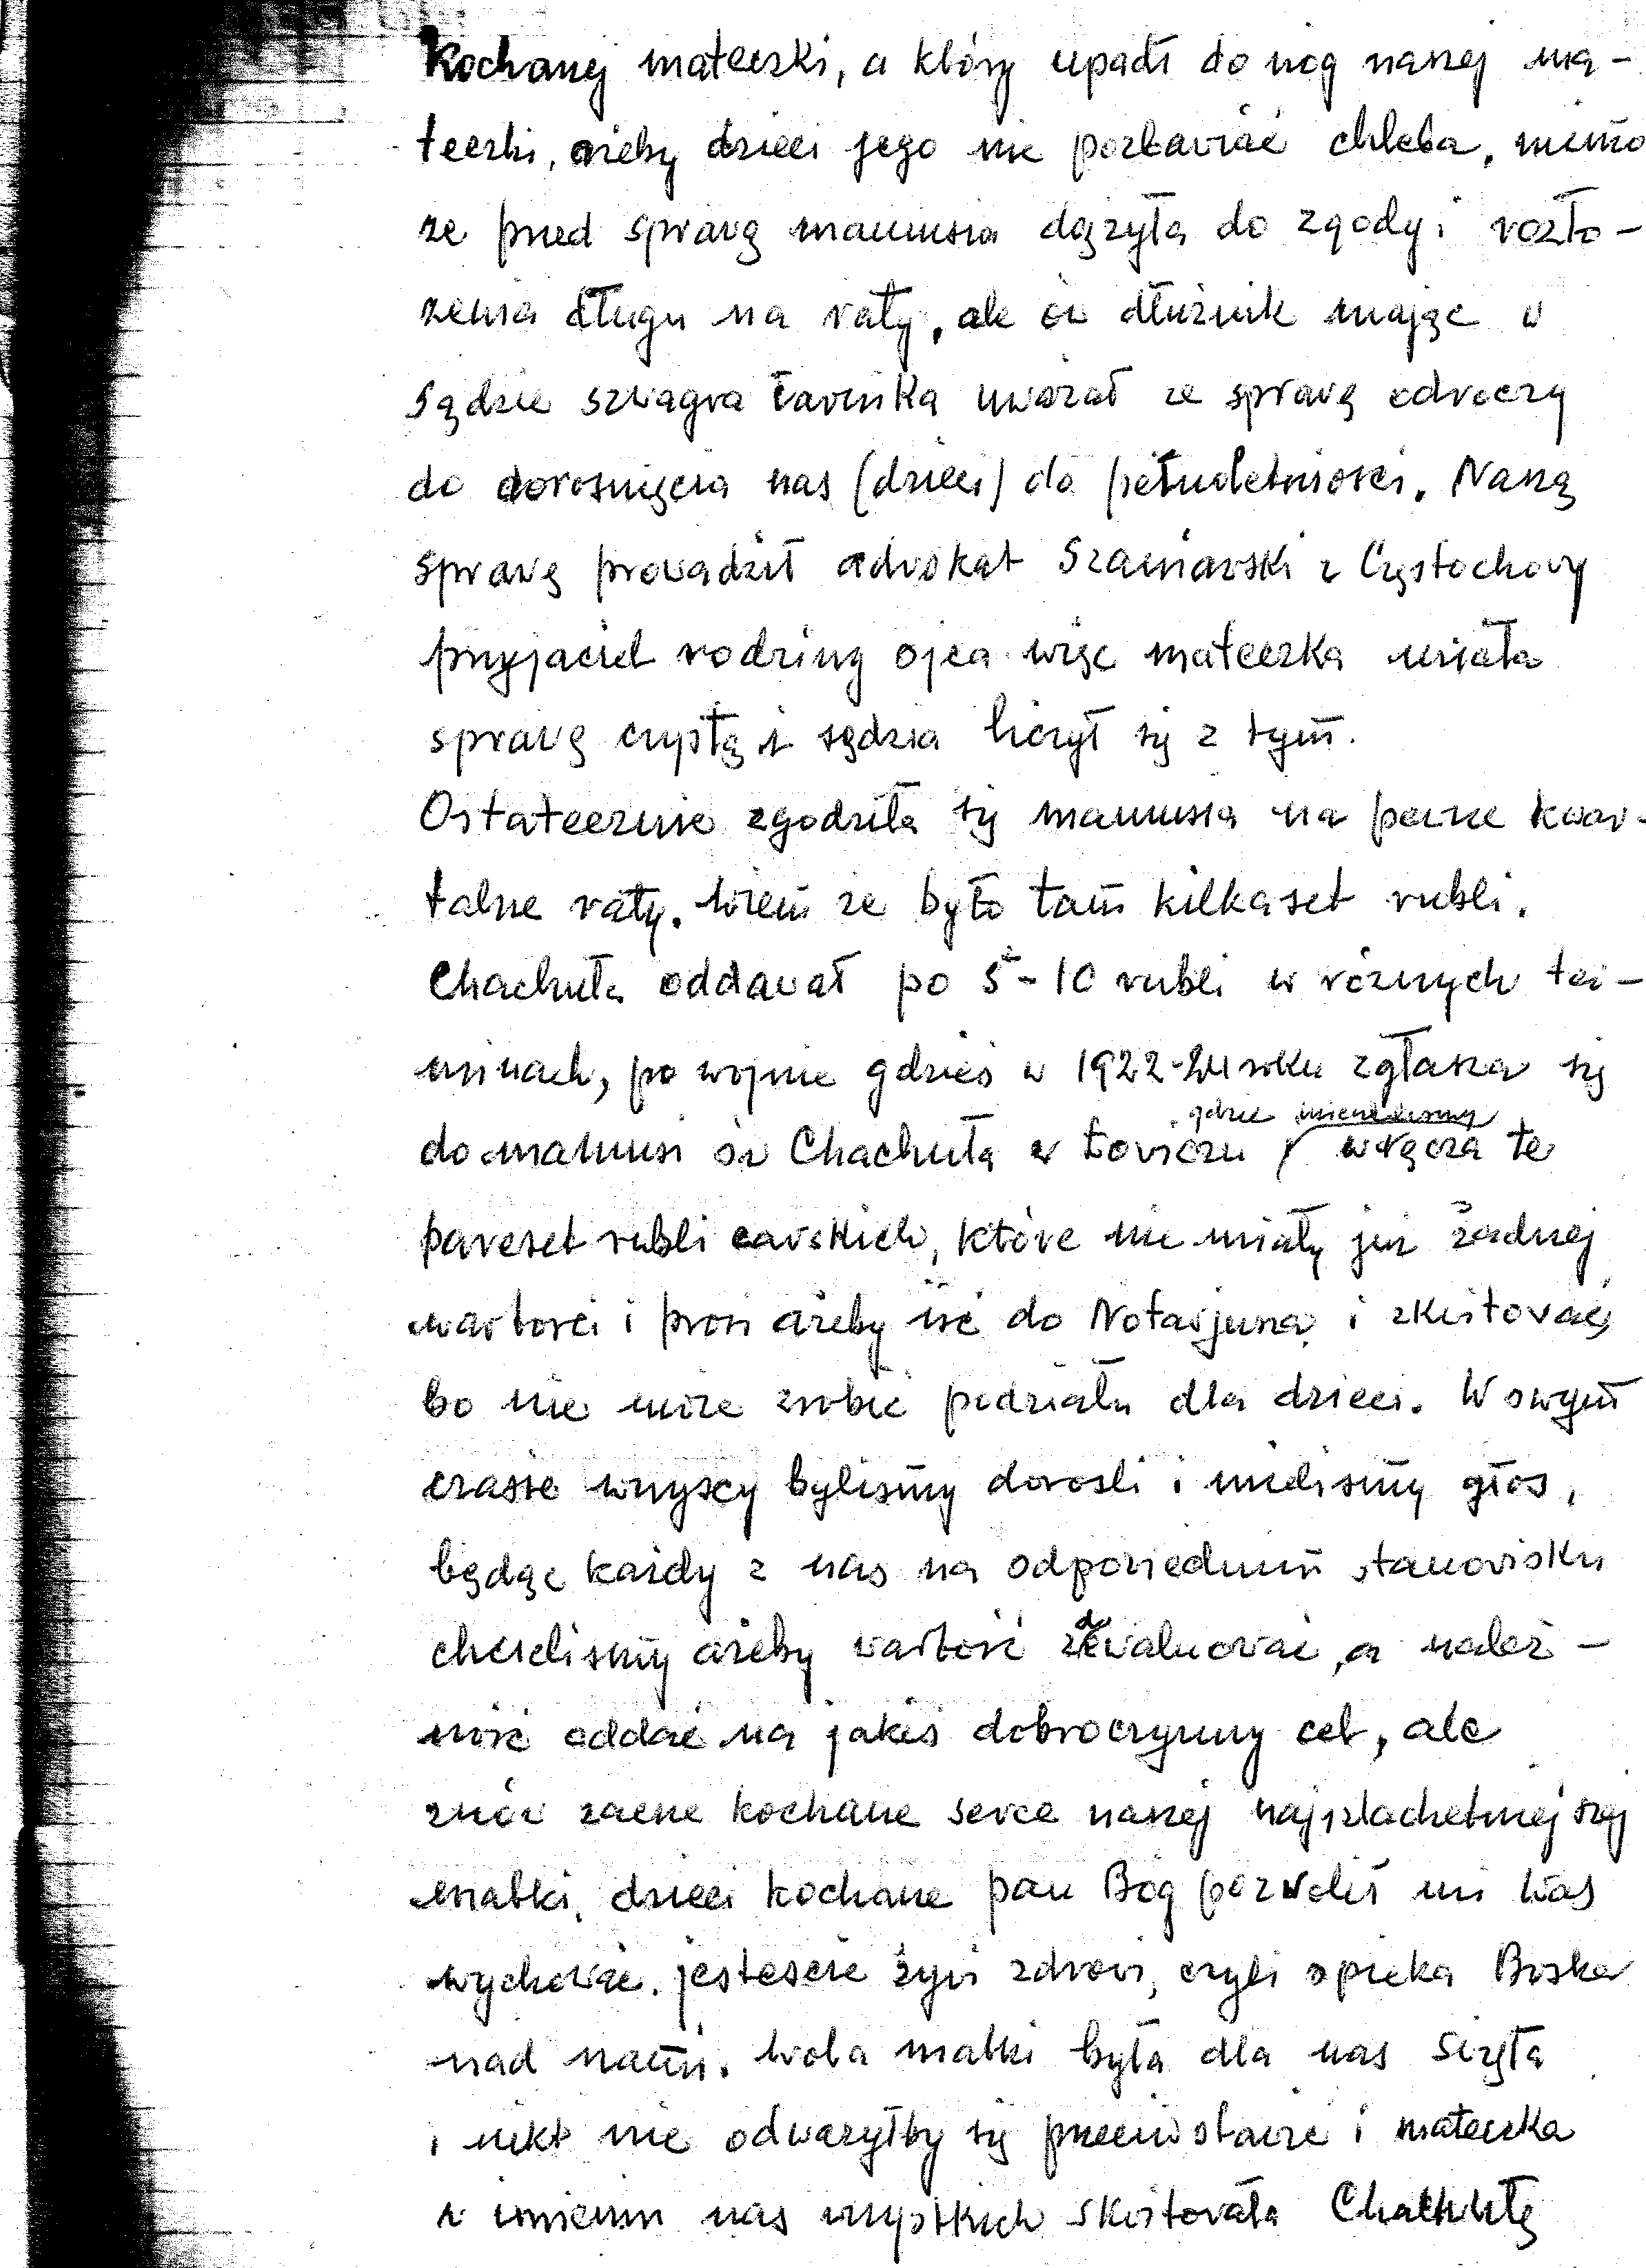 Kochanej mateczki, a który upadł do nóg naszej ma-
teczki, ażeby dzieci jego nie pozbawiać chleba, mimo
że przed sprawą mamusia dążyła do zgody i rozło-
żenia długu na raty, ale ów dłużnik mając w
sądzie szwagra ławnika uważał że sprawę odroczy
do dorośnięcia nas (dzieci) do pełnoletności. Naszą
sprawę prowadził adwokat Szaniawski z Częstochowy
przyjaciel rodziny ojca więc mateczka miała
sprawę czystą i sędzia liczył się z tym.
Ostatecznie zgodziła się mamusia na pewne kwar-
talne raty. Wiem że było tam kilkaset rubli.
Chachuła oddawał po 5-10 rubli w różnych ter-
minach, po wojnie gdzieś w 1922-24 roku zgłasza się
do mamusi ów Chachuła w Łowiczu gdzie mieszkaliśmy wręcza te
pareset rubli carskich, które nie miały już żadnej
wartości i prosi ażeby iść do Notarjusza i skwitować,
bo nie może zrobić podziału dla dzieci. W owym
czasie wszyscy byliśmy dorośli i mieliśmy głos,
będąc każdy z nas na odpowiednim stanowisku
chcieliśmy ażeby wartość zdewaluować, a należ-
ność oddać na jakiś dobroczynny cel, ale
znów zacne kochane serce naszej najszlachetniejszej
matki, dzieci kochane pan Bóg pozwolił mi Was
wychować, jesteście żywi zdrowi, czyli opieka Boska
nad nami. Wola matki była dla nas świętą
i nikt nie odważyłby się przeciwstawić i mateczka
w imieniu nas wszystkich skwitowała Chachułę